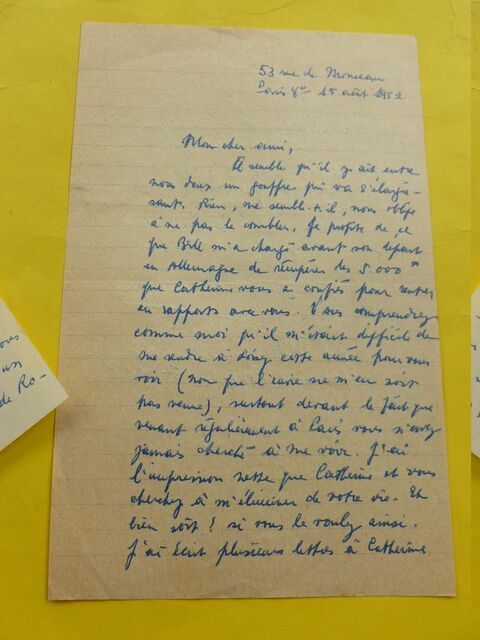 53 rue de Monceau
Paris 8e 15 août 1952
Mon cher ami,
Il semble qu'il y ait entre
nous deux un gouffre qui va s'élargis-
sant. Rien, me semble-t-il, nous oblige
à ne pas le combler. Je profite de ce
que Bill m'a chargé avant son départ
en Allemagne de récupérer les 5.000
que Catherine vous a confiés pour rentrer
en rapports avec vous. Vous comprendrez
comme moi qu'il m'était difficile de
me rendre à cette année pour vous
voir (non que l'envie ne m'en soit
pas venue), surtout devant le fait que
venant régulièrement à Paris vous n'avez
jamais cherché à me voir. J'ai
l'impression nette que Catherine et vous
cherchez à m'éliminer de votre vie. Eh
bien soit ! si vous le voulez ainsi.
J'ai écrit plusieurs lettres à Catherine
ous
un
de Ro-